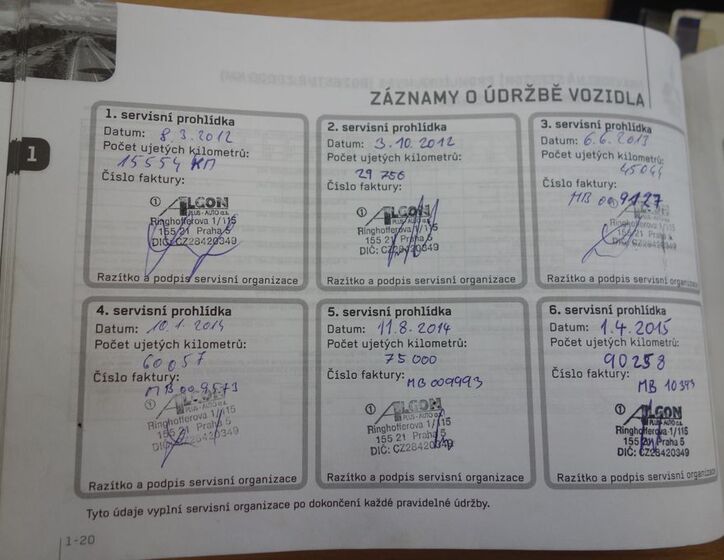 ZÁZNAMY O ÚDRŽBĚ VOZIDLA
1
1. servisní prohlídka
Datum: 8.3.2012
Počet ujetých kilometrů:
15554 КП
Číslo faktury:
① ALGON
PLUS - AUTO a.s.
Ringhofferova 1/115
155 21 Praha 5
DIČ: CZ28420349
Razítko a podpis servisní organizace
2. servisní prohlídka
Datum: 3.10.2012
Počet ujetých kilometrů:
29 756
Číslo faktury:
① ALGON
PLUS - AUTO a.s.
Ringhofferova 1/115
155 21 Praha 5
DIČ: CZ28420349
Razítko a podpis servisní organizace
3. servisní prohlídka
Datum: 6.6.2013
Počet ujetých kilometrů:
Číslo faktury:
①
Ringhofferova 1/115
155 21 Praha 5
DIČ: CZ28420349
Razítko a podpis servisní organizace
4. servisní prohlídka
Datum: 10.1.2014
Počet ujetých kilometrů:
60057
Číslo faktury:
MB 009573
①
PLUS - AUTO a.s.
Ringhofferova 1/115
155 21 Praha 5
DIČ: CZ28420349
Razítko a podpis servisní organizace
5. servisní prohlídka
Datum: 11.8.2014
Počet ujetých kilometrů:
75 000
Číslo faktury:
MB 009993
① ALGON
PLUS - AUTO a.s.
Ringhofferova 1/115
155 21 Praha 5
DIČ: CZ28420349
Razítko a podpis servisní organizace
6. servisní prohlídka
Datum: 1.4.2015
Počet ujetých kilometrů:
90258
Číslo faktury:
MB 10393
① ALGON
PLUS - AUTO a.s.
Ringhofferova 1/115
155 21 Praha 5
DIČ: CZ28420349
Razítko a podpis servisní organizace
Tyto údaje vyplní servisní organizace po dokončení každé pravidelné údržby.
1-20